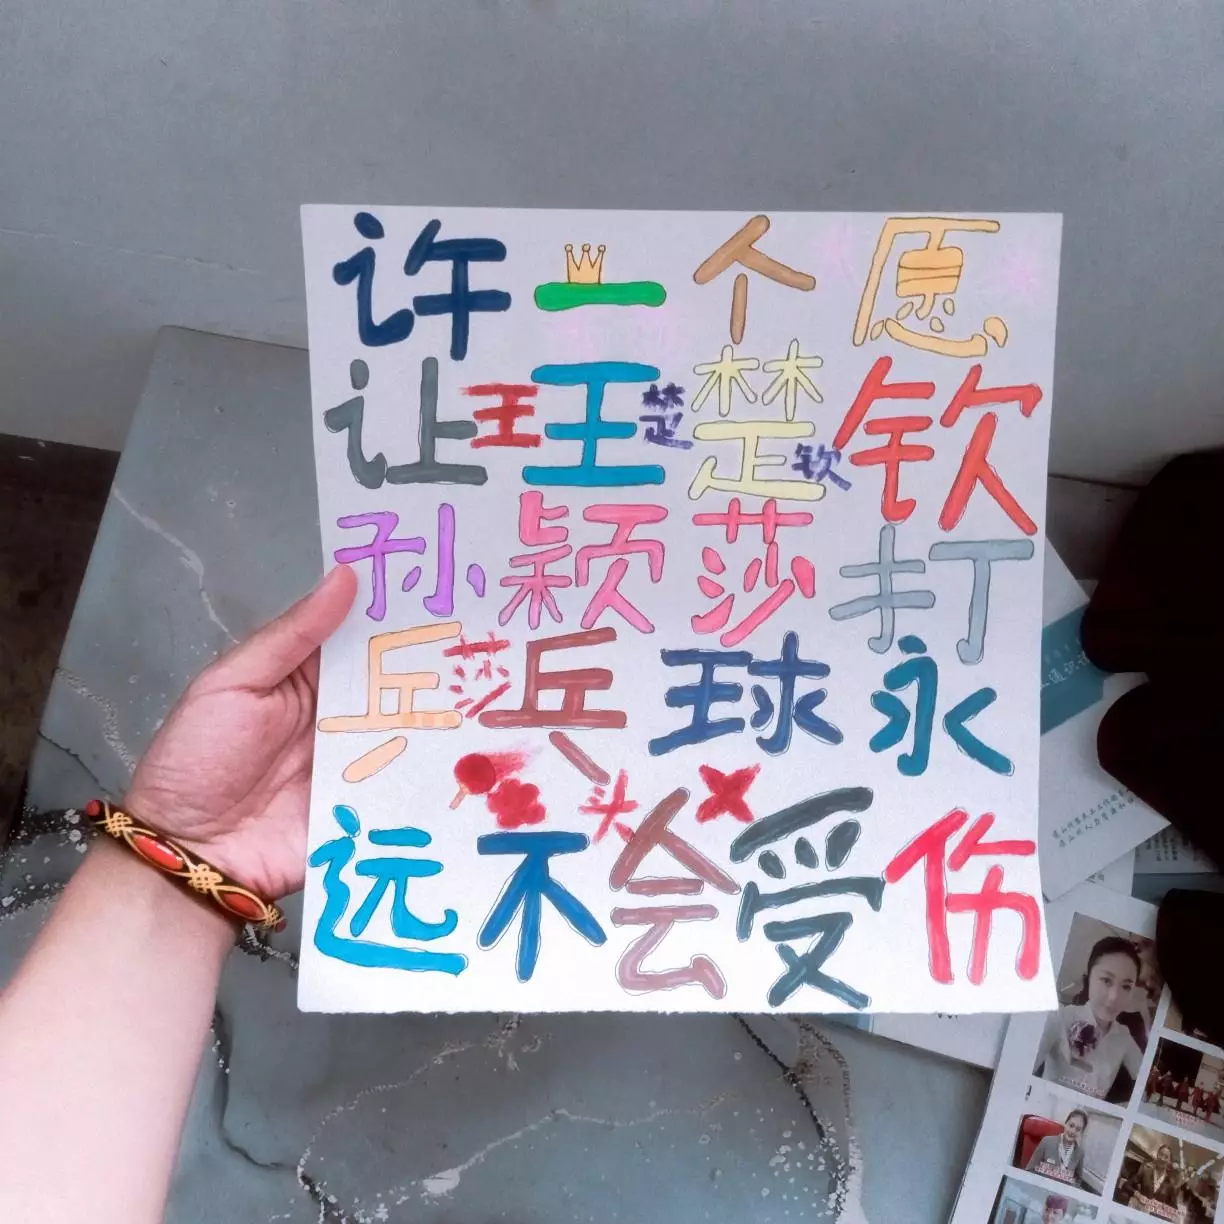 许一个愿
让王楚钦
王楚钦
孙颖莎打
乒乓球永
莎
头
远不会受伤